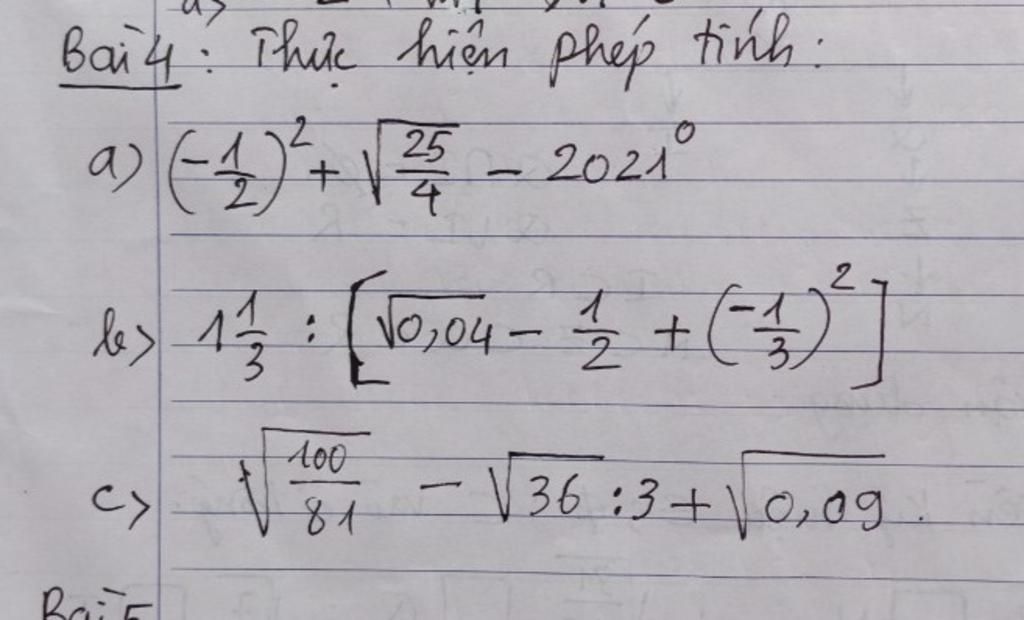 Bài 4 : Thực hiện phép tính :
a) (-1/2)² + √(25/4) - 2021⁰
b) 1 1/3 : [√0,04 - 1/2 + (-1/3)²]
c) √(100/81) - √36 : 3 + √0,09.
Bài 5